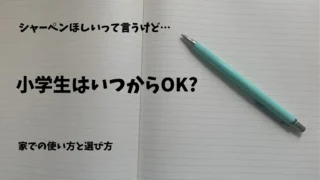 シャーペンほしいって言うけど…
小学生はいつからOK?
家での使い方と選び方